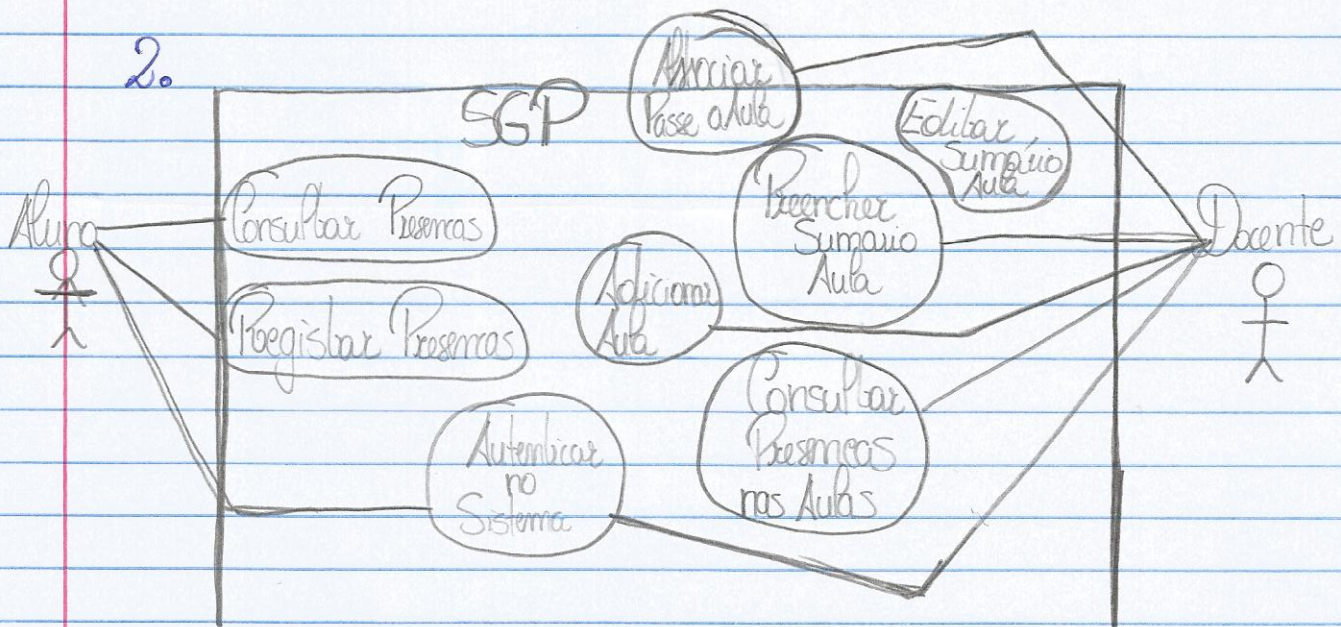 2.
SGP
Associar
Passe a Aula
Editar
Sumário
Aula
Aluno
Consultar Presenças
Preencher
Sumário
Aula
Docente
Adicionar
Aula
Registar Presenças
Consultar
Presenças
nas Aulas
Autenticar
no
Sistema